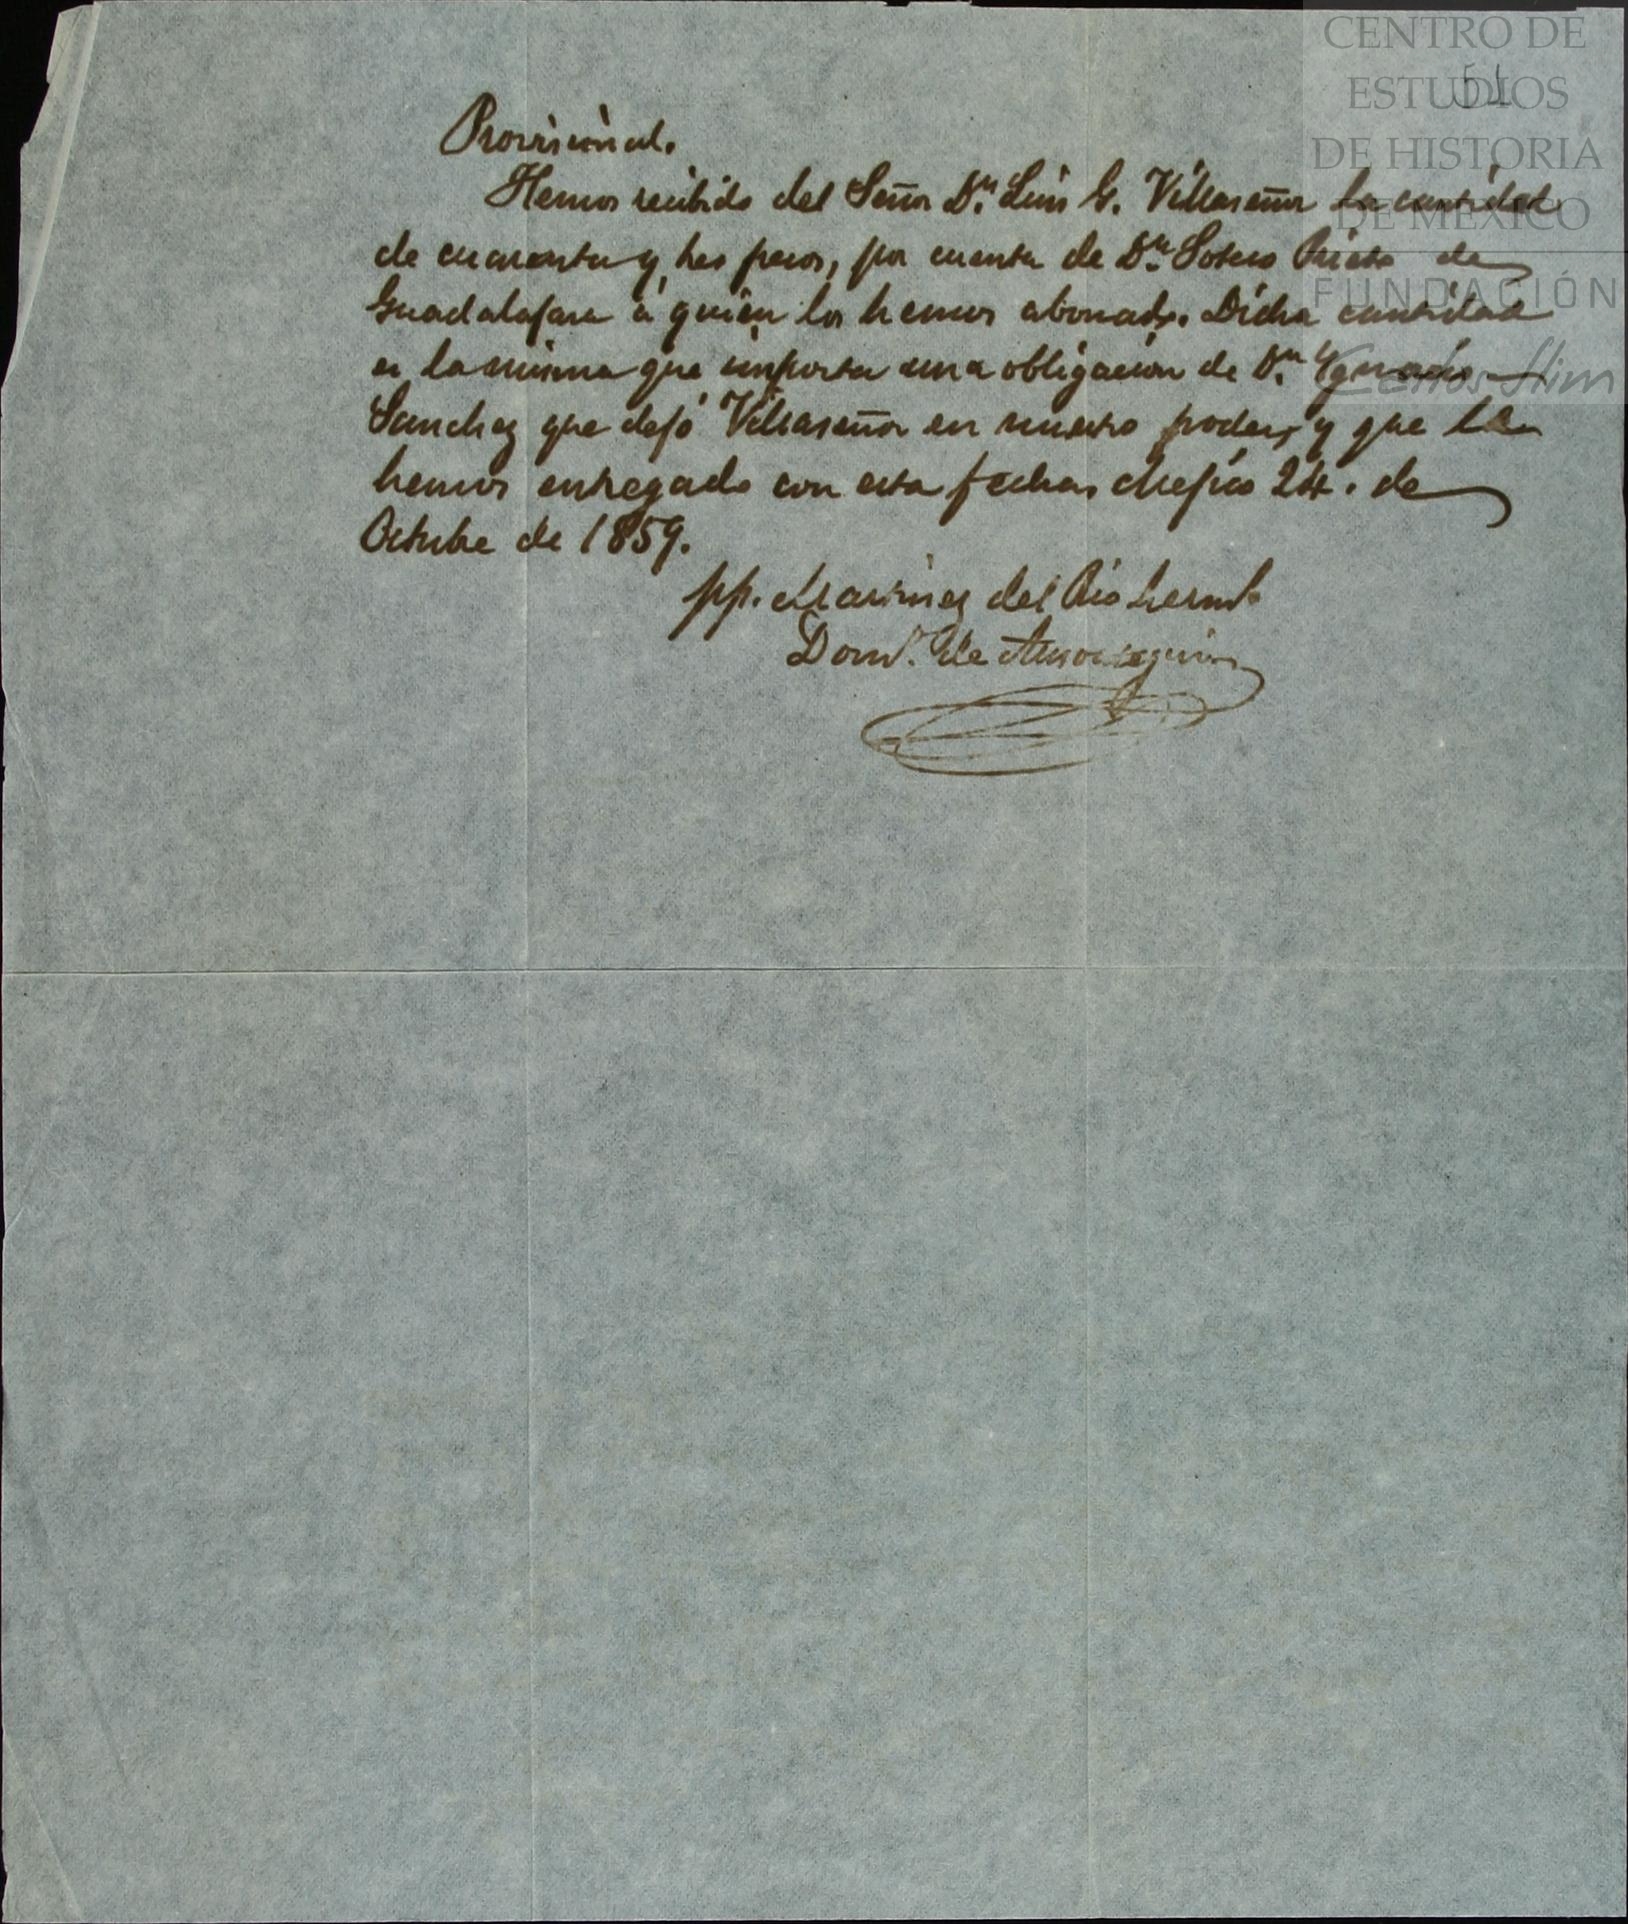 CENTRO DE
ESTUDIOS
DE HISTORIA
DE MÉXICO
FUNDACIÓN
Carlos Slim
51
Provisional.
Hemos recibido del Señor Dn. Luis G. Villaseñor la cantidad
de cuarenta y tres pesos, por cuenta de Dn. Sotero Prieto de
Guadalajara á quien los hemos abonado. Dicha cantidad
es la misma que importa una obligacion de Dn. Ygnacio
Sanchez que dejó Villaseñor en nuestro poder, y que le
hemos entregado con esta fecha. Mejico 24. de
Octubre de 1859.
pp. Martinez del Rio herms.
Domo. de